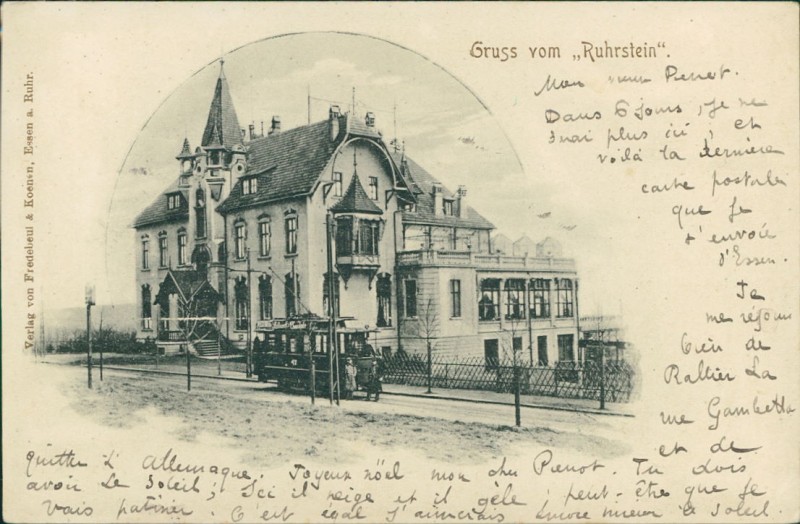 Gruss vom „Ruhrstein“.
Verlag von Fredebeul & Koenen, Essen a. Ruhr.
Mon vieux Pierrot.
Dans 6 jours, je ne
serai plus ici, et
voilà la dernière
carte postale
que je
t'envoie
d'Essen.
Je
me réjouis
bien de
Rallier La
rue Gambetta
et de
quitter l'Allemagne. Joyeux nöel mon cher Pierrot. Tu dois
avoir le soleil; Ici il neige et il gèle; peut-être que je
vais patiner. C'est égal j'aimerais encore mieux le soleil.